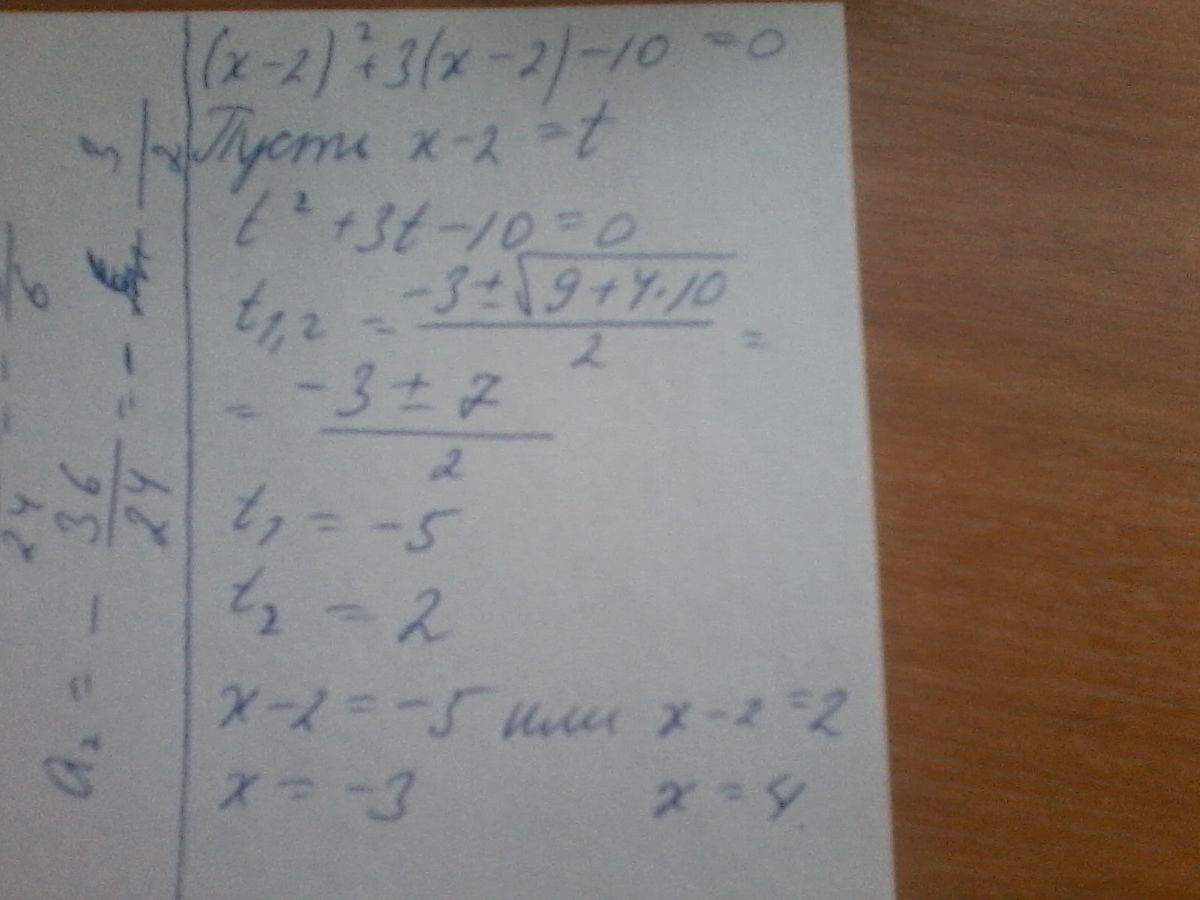 (x-2)²+3(x-2)-10=0
Пусть x-2=t
t²+3t-10=0
t₁,₂ = (-3±√(9+4·10))/2 =
= (-3±7)/2
t₁ = -5
t₂ = 2
x-2=-5 или x-2=2
x=-3 x=4
a₂ = -36/24 = -
3/2
24